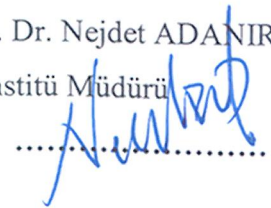 . Dr. Nejdet ADANIR
stitü Müdürü
....................